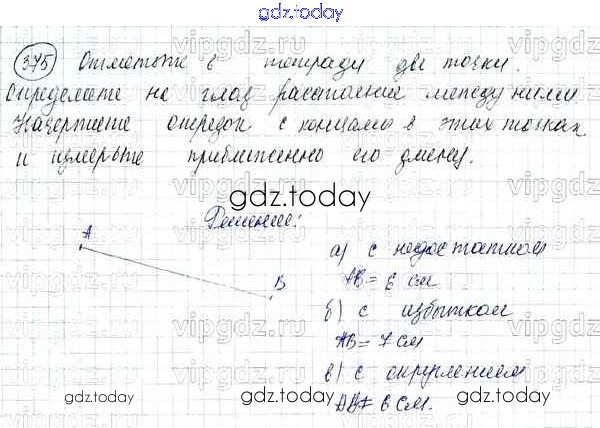 gdz.today
375 Отметьте в тетради две точки.
Определите на глаз расстояние между ними
Начертите отрезок с концами в этих точках
и измерьте приближенно его длину.
gdz.today
Решение:
A
B
а) с недостатком
AB = 6 см
б) с избытком
AB = 7 см
в) с округлением
AB = 6 см.
gdz.today
gdz.today
vipgdz.ru